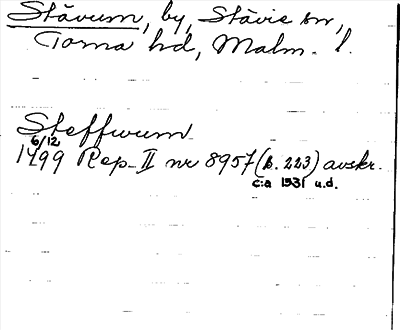 Stävum, by, Stävie sn,
Torna hd, Malm. l.
Steffwum
6/12
1499 Rep. II nr 8957 (b. 223) avskr.
c:a 1531 u.d.